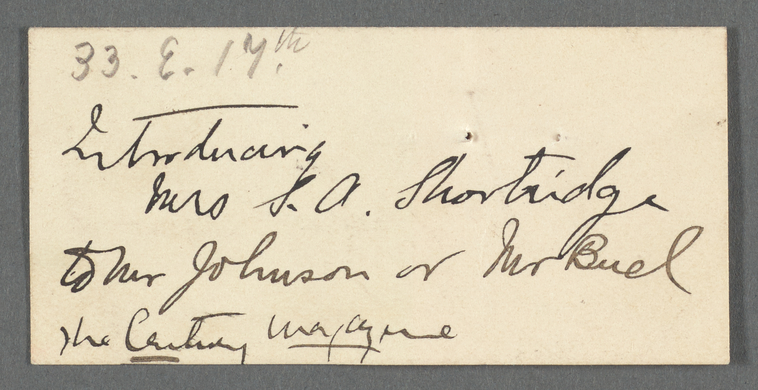 33. E. 17th.
Introducing
Mrs S. A. Shortridge
to Mr Johnson or Mr Buel
The Century Magazine